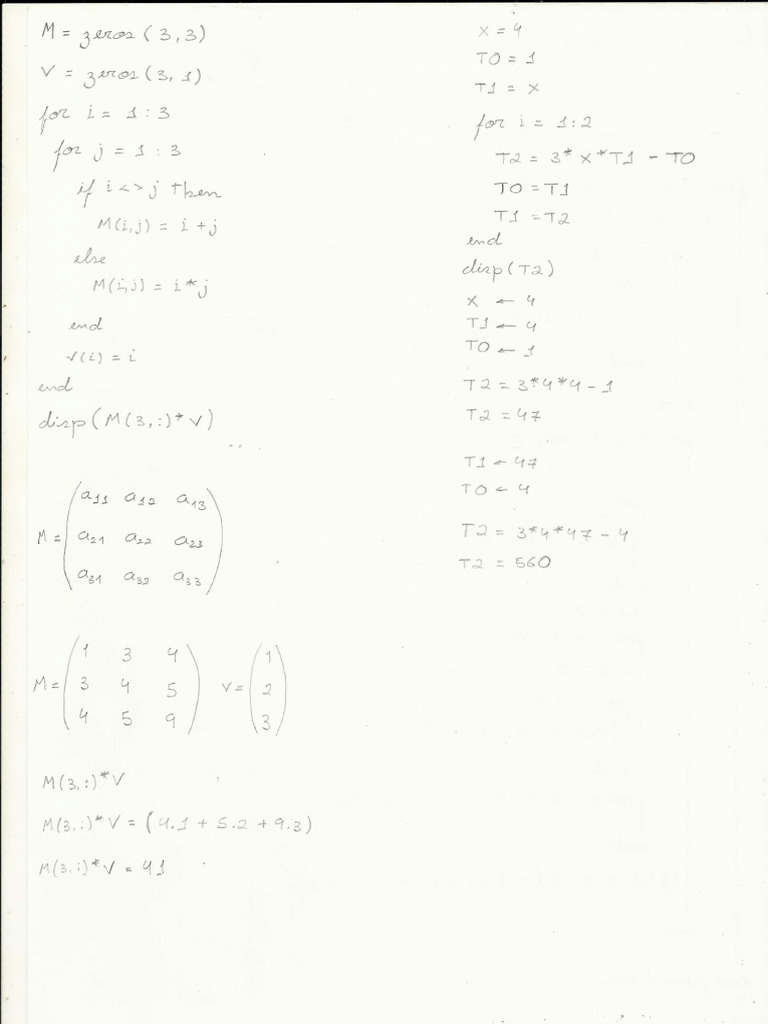 M = zeros (3,3)
V = zeros (3,1)
for i = 1:3
for j = 1:3
if i <> j then
M(i,j) = i + j
else
M(i,j) = i * j
end
v(i) = i
end
disp(M(3,:)*V)
M = (a11 a12 a13
a21 a22 a23
a31 a32 a33)
M = (1 3 4
3 4 5
4 5 9)
V = (1
2
3)
M(3,:)*V
M(3,:)*V = (4.1 + 5.2 + 9.3)
M(3,:)*V = 41
x = 4
T0 = 1
T1 = x
for i = 1:2
T2 = 3*x*T1 - T0
T0 = T1
T1 = T2
end
disp(T2)
x ← 4
T1 ← 4
T0 ← 1
T2 = 3*4*4 - 1
T2 = 47
T1 ← 47
T0 ← 4
T2 = 3*4*47 - 4
T2 = 560